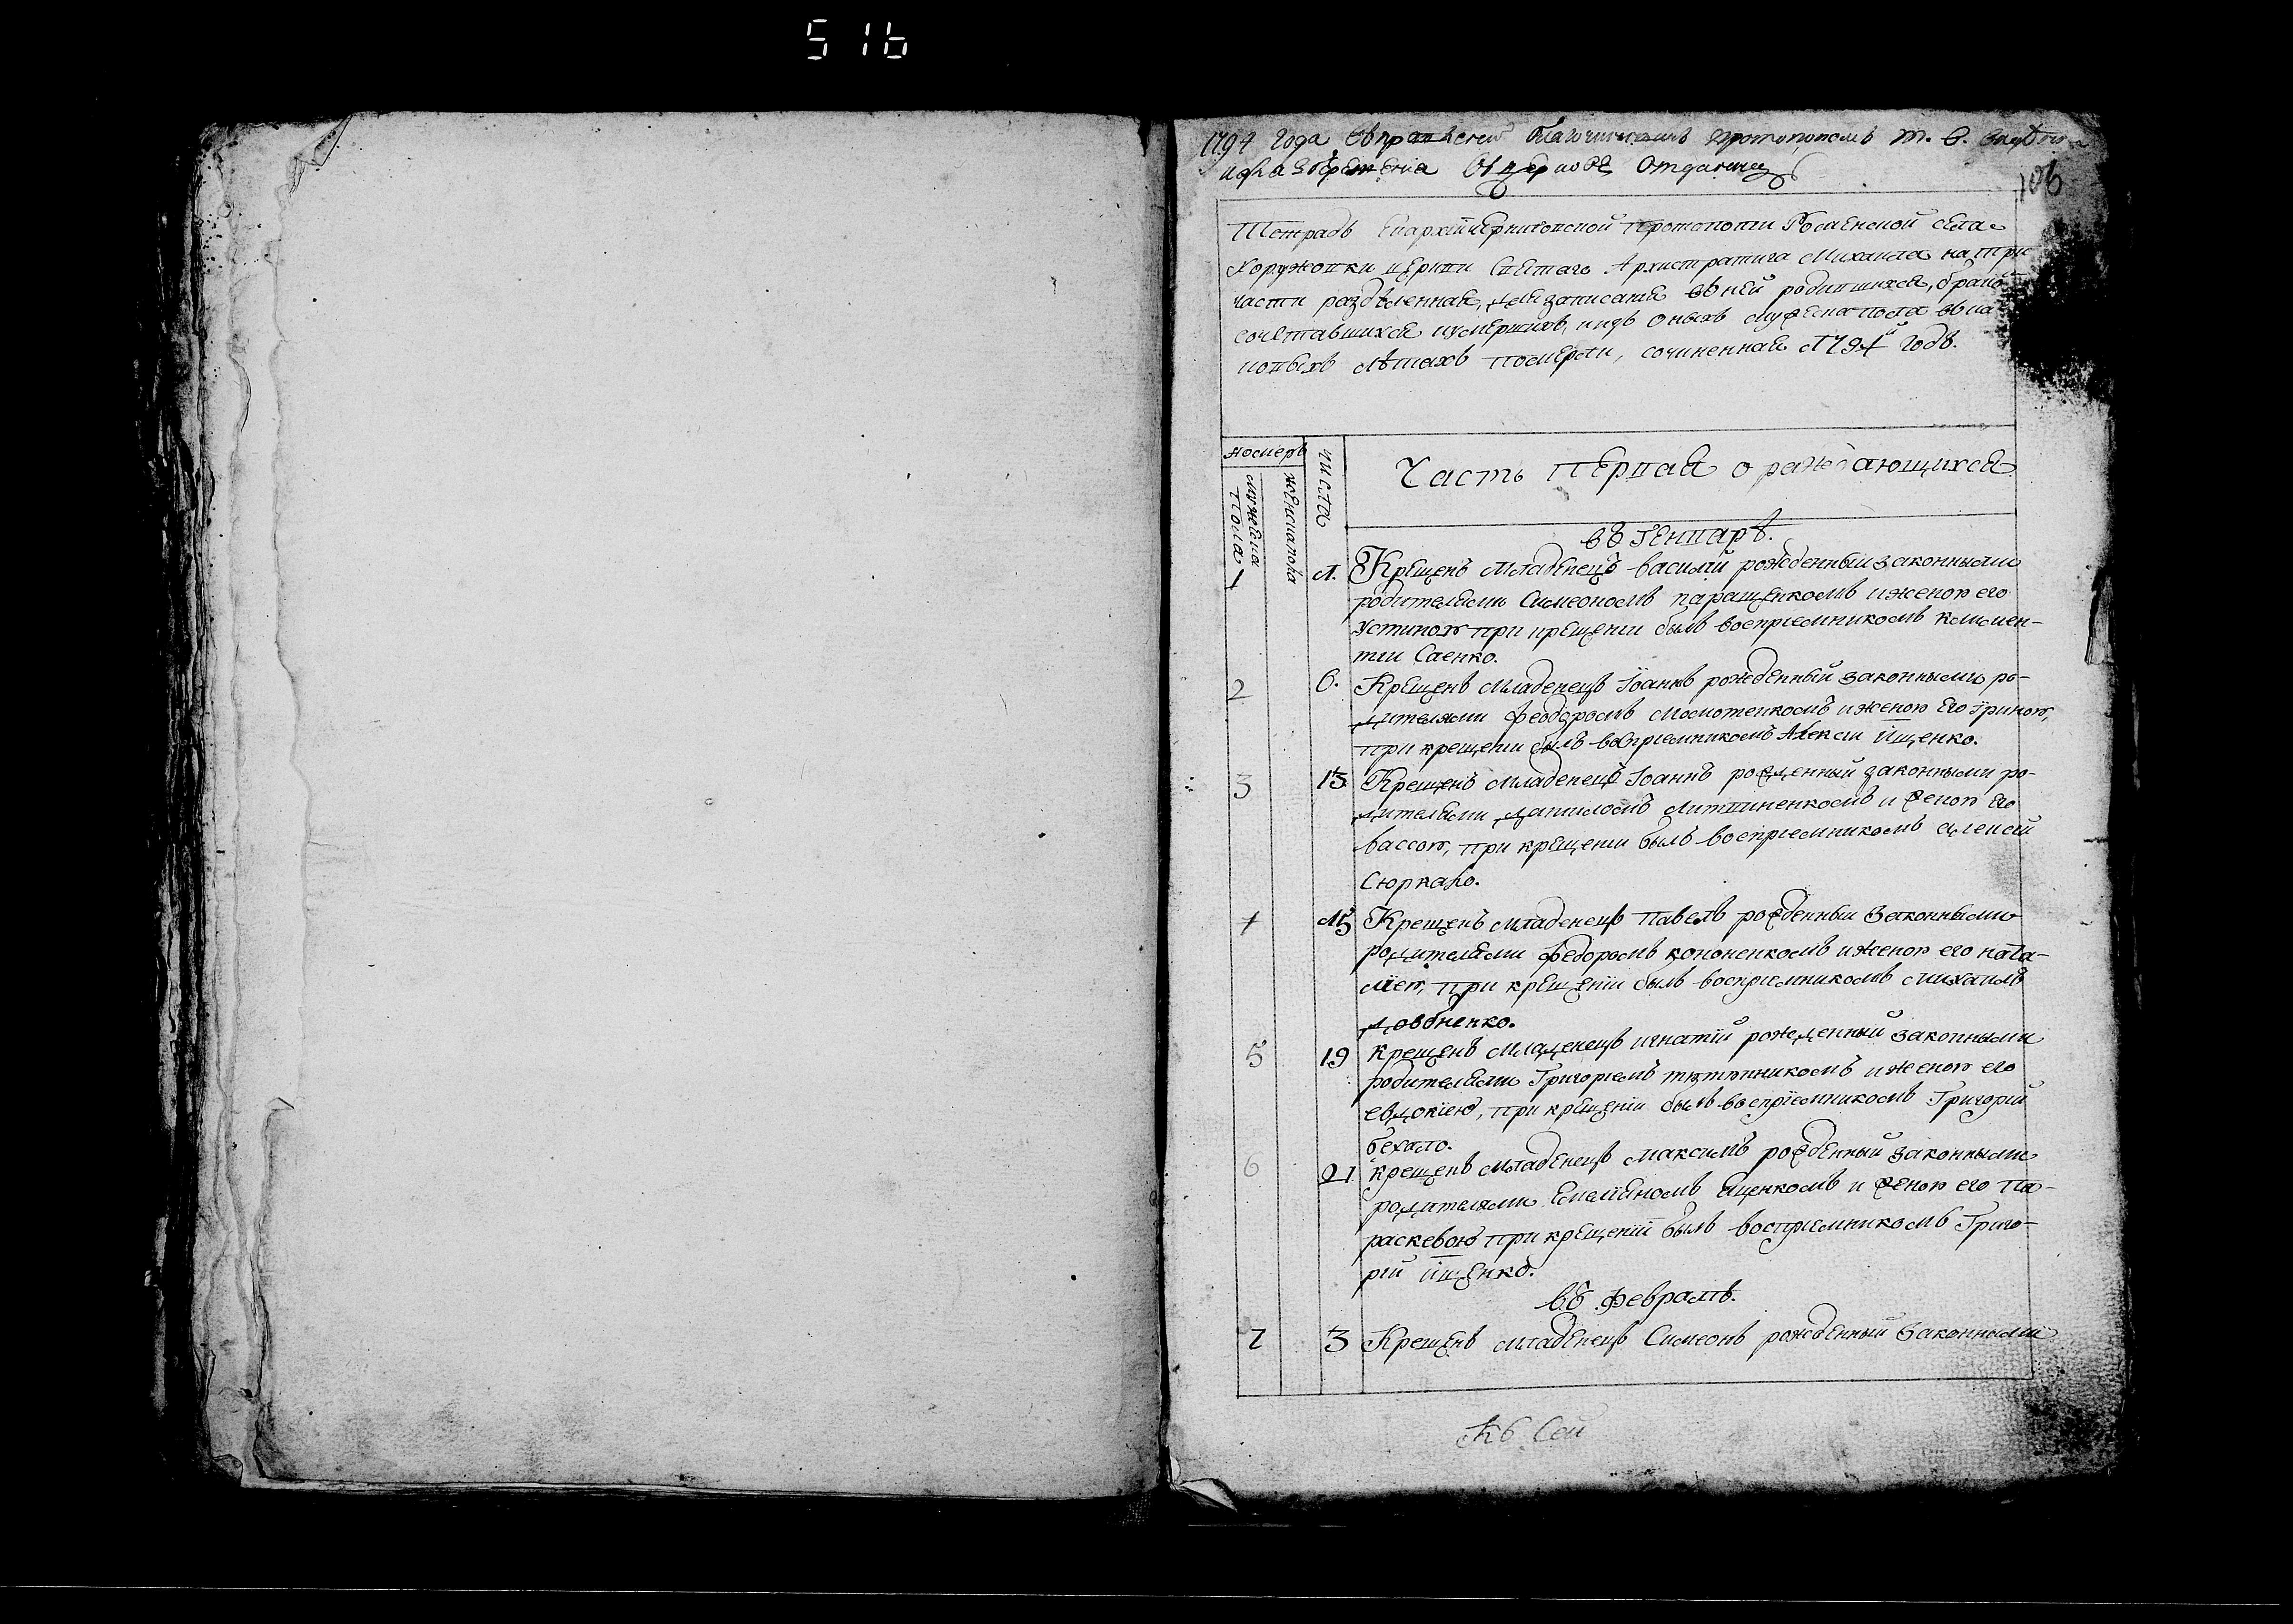 516
1794 года благочиннымъ протопопомъ
церковь отданы
106
Тетрадь Епархіи Черниговской протопопіи Роменской села
Хоружовки церкви Святаго Архистратига Михаила на три
части раздѣленная, для записанія въ ней родившихся, бракомъ
сочетавшихся и умершихъ, и изъ оныхъ мужеска пола въ ка
ковыхъ лѣтахъ померли, сочиненная 1794 годъ.
Номеръ
мужеска пола
женска пола
числа
Часть первая о раждающихся
въ Генварѣ.
1 1. Крещенъ младенецъ василий рожденный законными
родителями Симеономъ паращенкомъ и женою его
устиною при крещении былъ восприемникомъ климен-
тии Саенко.
2 6. Крещенъ младенецъ Іоаннъ рожденный законными ро-
дителями феодоромъ женою его Іриною,
при крещении былъ восприемникомъ Алексии Ищенко.
3 13 Крещенъ младенецъ Іоаннъ рожденный законными ро-
дителями даниломъ литвиненкомъ и женою его
вассою, при крещении былъ восприемникомъ алексий
Сюркало.
4 15 Крещенъ младенецъ павелъ рожденный законными
родителями федоромъ кононенкомъ и женою его ната-
лиею, при крещеніи былъ восприемникомъ михаилъ
довбненко.
5 19 крещенъ младенецъ игнатій рожденный законными
родителями Григориемъ тютюнникомъ и женою его
евдокіею, при крещеніи былъ воспріемникомъ Григорий
бехало.
6 21 крещенъ младенецъ максимъ рожденный законными
родителями Емелиеномъ ещенкомъ и женою его па-
раскевою при крещеніи былъ восприемникомъ Григо-
рій ищенко.
въ февралѣ.
7 3 Крещенъ младенецъ Симеонъ рожденный законными
Къ Сей